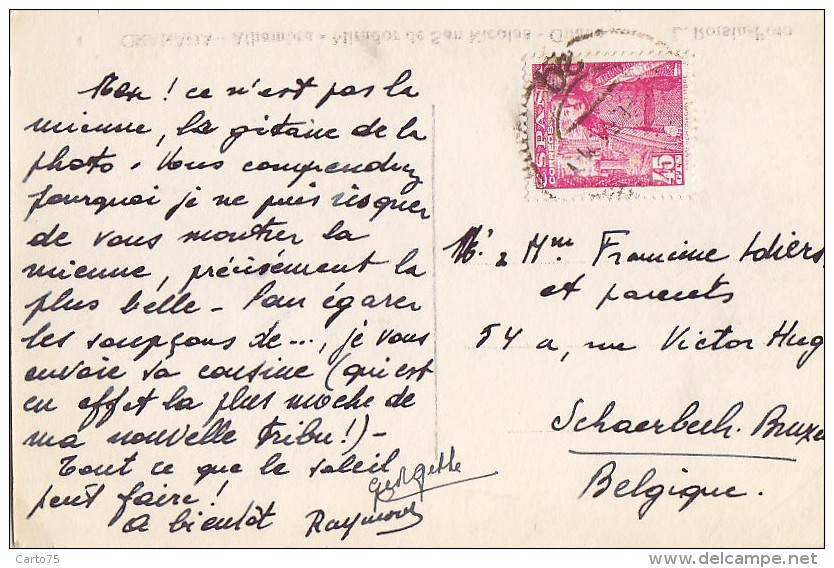 GRANADA - Alhambra - Mirador de San Nicolas -
L. Roisin-Foto
Non ! ce n'est pas la
mienne, la gitane de la
photo. Vous comprendrez
pourquoi je ne puis risquer
de vous montrer la
mienne, précisément la
plus belle - Pour égarer
les soupçons de ..., je vous
envoie sa cousine (qui est
en effet la plus moche de
ma nouvelle tribu !) -
Tout ce que le soleil
peut faire !
A bientôt Raymond
Georgette
CORREOS
ESPAÑA
45
Mr & Mme Francine
et parents
54 a, rue Victor Hug
Schaerbeek. Brux
Belgique.
Carto75
delcampe.net